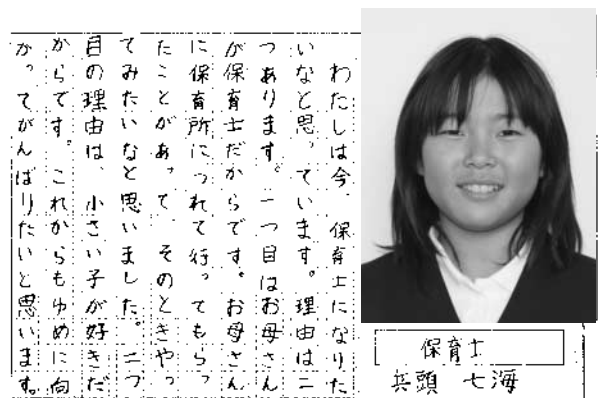 わたしは今、保育士になりた
いなと思っています。理由は二
つあります。一つ目はお母さん
が保育士だからです。お母さん
に保育所につれて行ってもらっ
たことがあって、そのときやっ
てみたいなと思いました。二つ
目の理由は、小さい子が好きだ
からです。これからもゆめに向
かってがんばりたいと思います。
保育士
兵頭 七海